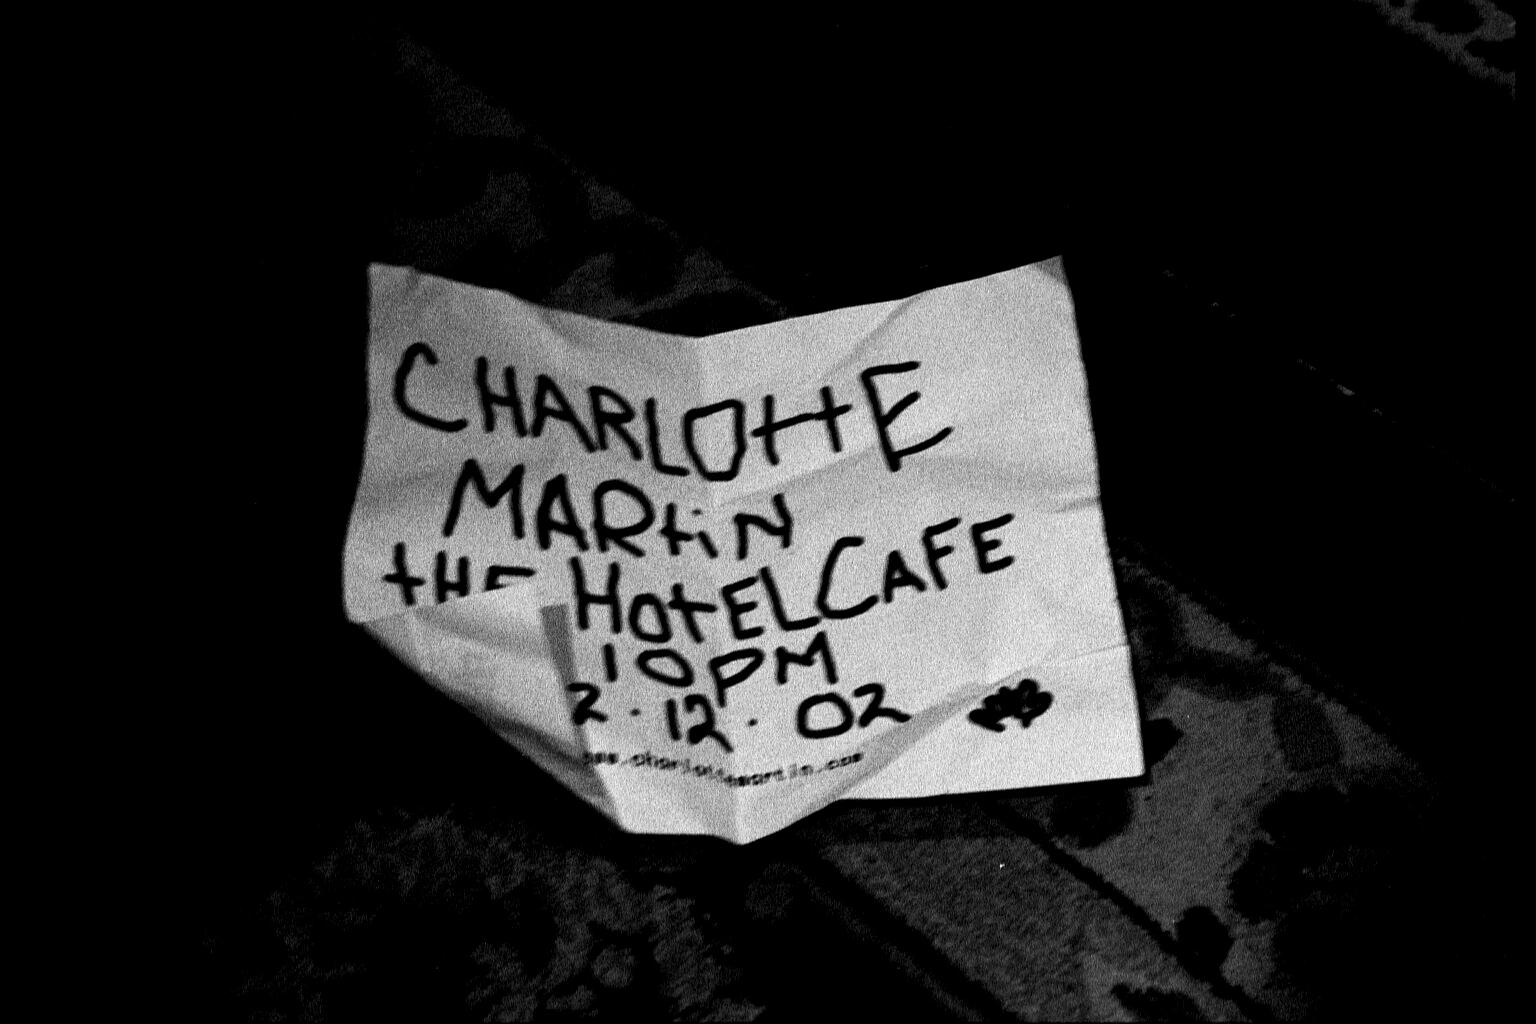 CHARLOTTE
MARtiN
tHE HotEL CAFE
10PM
2·12·02
www.charlottemartin.com